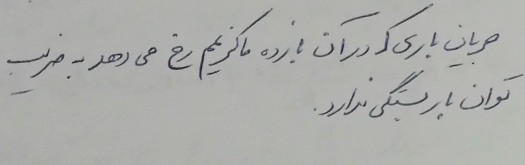 جریان باری که در آن بازده ماکزیمم رخ می دهد به ضریب
توان بار بستگی ندارد.